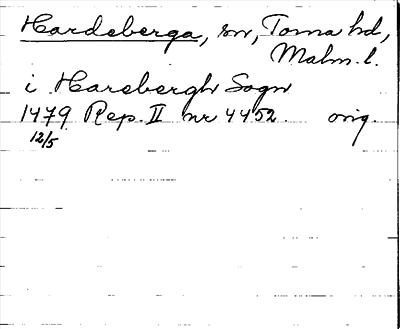 Hardeberga, sn, Torna hd,
Malm. l.
i Harebergh Sogn
1479 Rep. II nr 4452. orig.
12/5